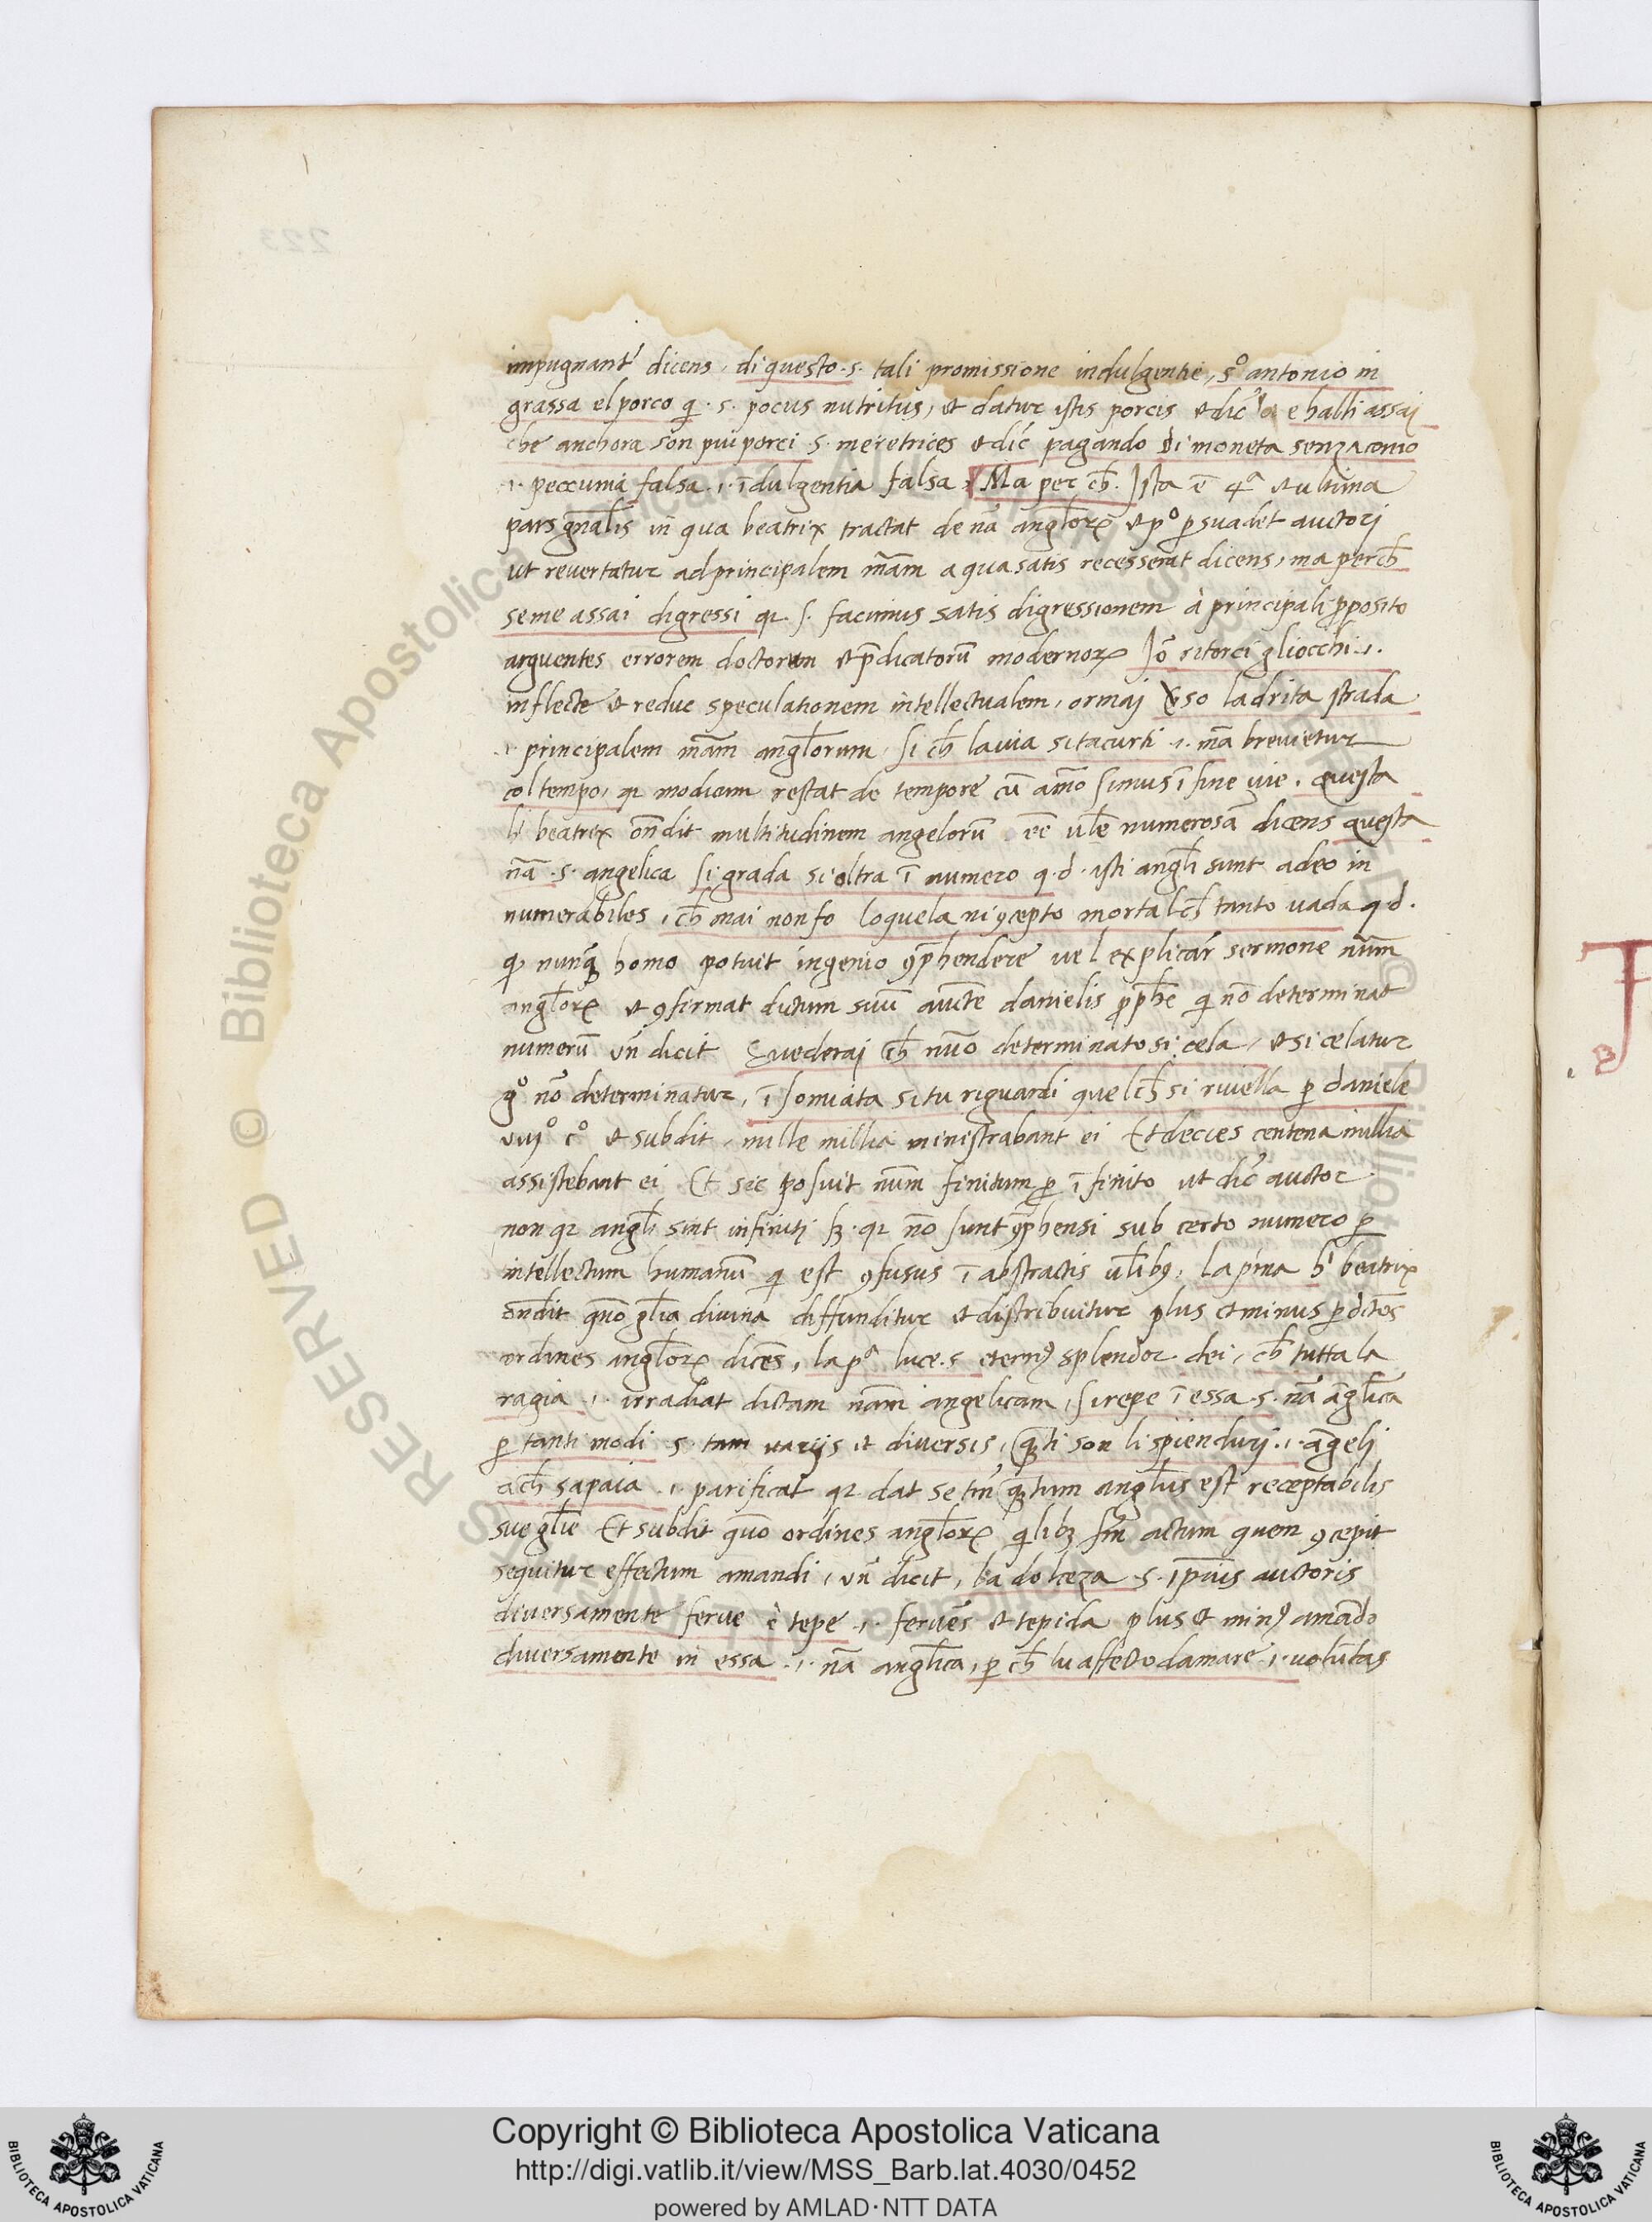 223
impugnant' dicens, di questo .s. tali promissione indulgentie, s.º antonio in
grassa el porco q̃ .s. pocus nutritus, et datur istis porcis et dic̃ e halti assaj
che anchora son piu porci .s. meretrices et dic̃ pagando di moneta senza conio
.i. peccunia falsa .i. ĩdulgentia falsa. Ma per ch̃. Ista ẽ 4ª et ultima
pars gñalis in qua beatrix tractat de nã angłorꝝ et pº ꝑsuadet auctorj
ut revertatur ad principalem mãm a qua satis recesserat dicens, ma perch̃
seme assai digressi qꝛ s. facimus satis digressionem à principali ꝓposito
arguentes errorem doctorum et p̃dicatorũ modernorꝝ Iõ ritorci gliocchi .i.
inflecte et reduc speculationem intellectualem, ormaj ꝟso ladrita strada
.i. principalem mãm angłorum, si ch̃ lavia sitacurti .i. mã brevietur
col tempo, qꝛ modicum restat de tempore cũ amõ simus ĩ fine vie. questa
hͥ beatrix oñdit multitudinem angelorũ eẽ vłe numerosã dicens questa
nã .s. angelica si grada sioltra ĩ numero q.d. isti angłi sunt adeo in
numerabiles, ch̃ mai non fo loquela ni ꝯcepto mortal ch̃ tanto vada q.d.
ꝙ nunqꝫ homo potuit ingenio ꝯp̃hendere vel explicar̃ sermone nũm
angłorꝝ et ꝯfirmat dictum suũ auctẽ danielis ꝓph̃e qͥ nõ determinat
numerũ vñ dicit Evederaj ch̃ nũo determinato si cela, et si celatur
gº nõ determinatur, ĩ somiata si tu riguardi quel ch̃ si rivella ꝑ daniele
vijº cº et subdit, mille millia ministrabant ei Et decies centena millia
assistebant ei Et sic posuit nũm finitum ꝑ ĩfinito ut dic̃ auctor
non qꝛ angłi sint infinitj sꝫ. qꝛ nõ sunt ꝯp̃hensi sub certo numero ꝑ
intellectum humanũ qͥ est ꝯfusus ĩ abstractis vłibꝰ. la prima hͥ beatrix
oñdit quõ głia divina diffunditur et distribuitur plus et minus ꝑ dictos
ordines angłorꝝ dicẽs, la pª luce .s. eternꝰ splendor dei, ch̃ tutta la
ragia .i. irradiat dictam nãm angelicam, si repe ĩ essa .s. nã ãgłica
ꝑ tanti modi .s. tam varijs et diversis, qꝫti son li spienduri .i. ãgelj
a ch̃ sapaia .i. parificat qꝛ dat se tm̃ qꝫtum angłus est receptabilis
sue głie Et subdit quõ ordines angłorꝝ qͥlibꝫ scďm actum quem ꝯcepit
sequitur effectum amandi, vñ dicit, la dolceza .s. ip̃ius auctoris
diversamente ferve è tepe .i. fervẽs et tepida plus et minꝰ amãdo
diversamente in essa .i. nã angłica, ꝑ ch̃ lu affecto damare .i. volũtas
Copyright © Biblioteca Apostolica Vaticana
http://digi.vatlib.it/view/MSS_Barb.lat.4030/0452
powered by AMLAD · NTT DATA
BIBLIOTECA APOSTOLICA VATICANA
BIBLIOTECA APOSTOLICA VATICANA